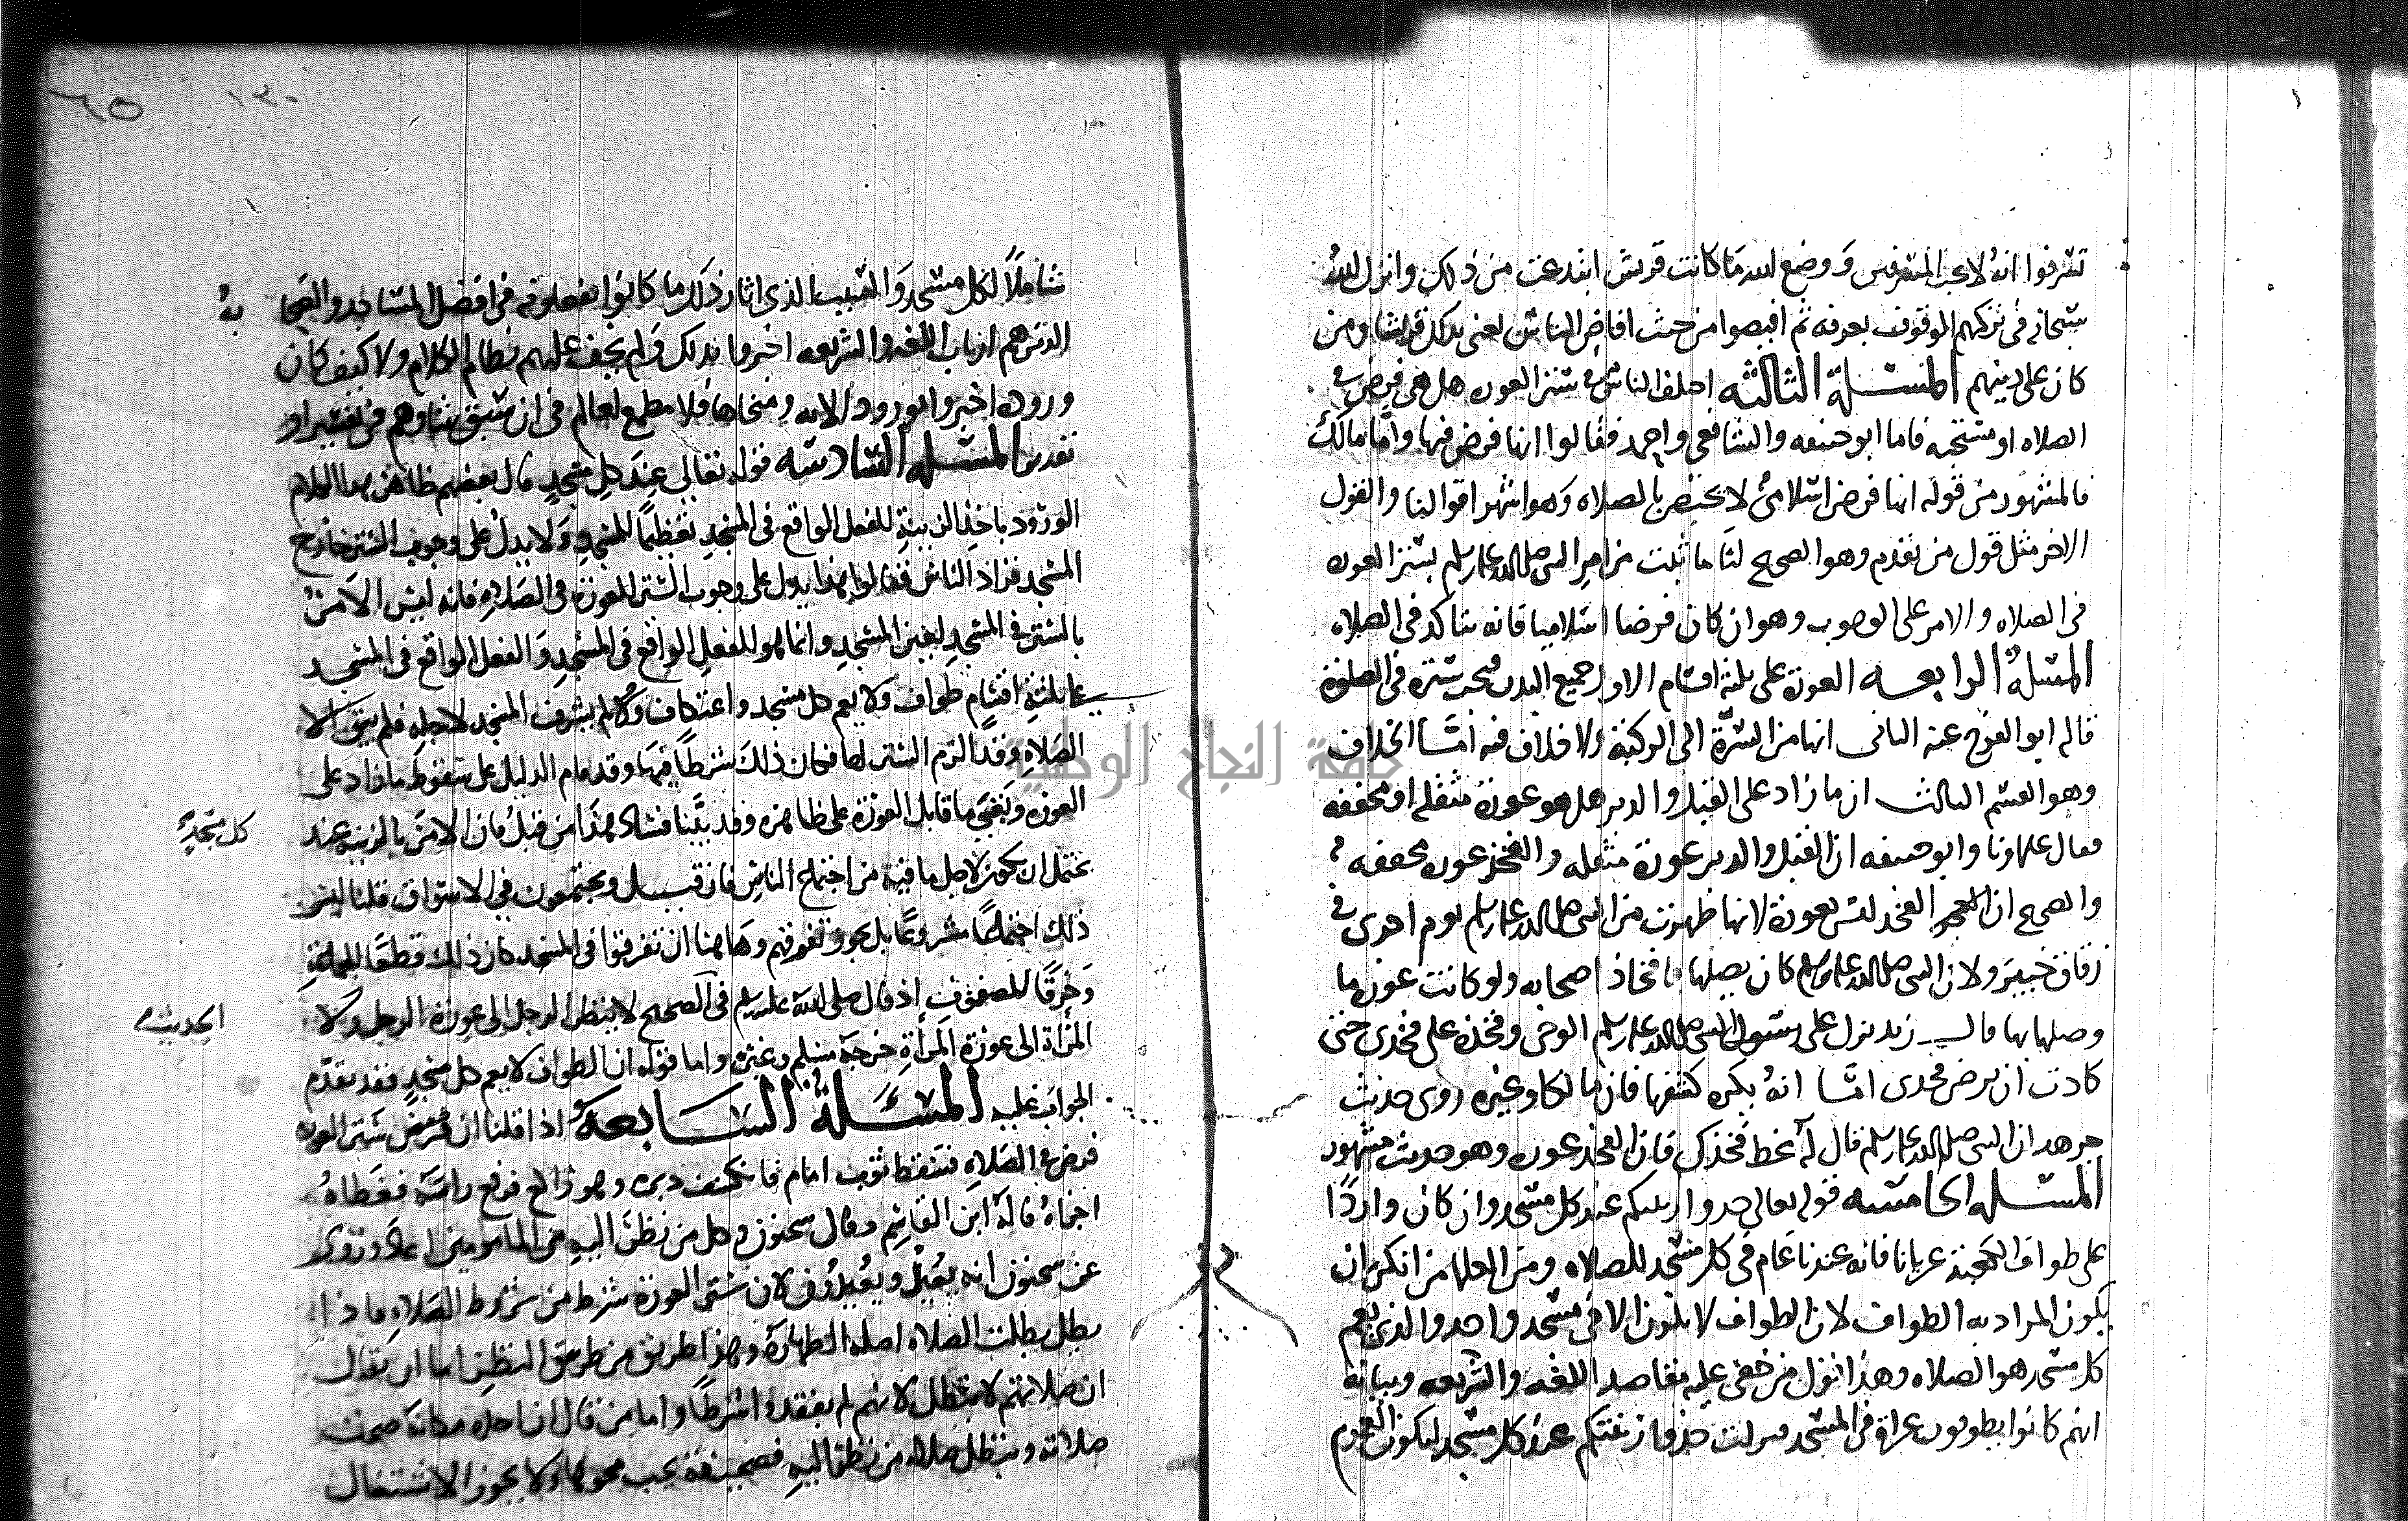 تسرفوا انه لا يحب المسرفين ووضع لله ما كانت قريش ابتدعت من ذلك وانزل الله
سبحانه في تركهم الوقوف بعرفه ثم افيضوا من حيث افاض الناس يعني بذلك قريشا ومن
كان على دينهم المسئلة الثالثه اختلف الناس في ستر العوره هل هي فرض في
الصلاه او مستحبه فاما ابو حنيفه والشافعي واحمد فقالوا انها فرض فيها واما مالك
فالمشهور من قوله انها فرض اسلامي لا يختص بالصلاه وهو اشهر اقوالنا والقول
الاخر مثل قول من تقدم وهو الصحيح لنا ما ثبت من امر النبي صلى الله عليه وسلم بستر العوره
في الصلاه والامر على الوجوب وهو ان كان فرضا اسلاميا فانه يتاكد في الصلاه
المسئلة الرابعه العورة على ثلثة اقسام الاول جميع البدن يجب ستره في الصلوة
قاله ابو الفرج عنه الثاني انها من السرة الى الركبة ولا خلاف فيه امّا الخلاف
وهو القسم الثالث ان ما زاد على القبل والدبر هل هو عورة مثقلة او مخففه
فقال علماونا وابو حنيفه ان القبل والدبر عورة مثقله والفخذ عوره مخففه
والصحيح ان الفخذ ليس بعورة لانها ظهرت من النبي صلى الله عليه وسلم يوم اجرى في
زقاق خيبر ولان النبي صلى الله عليه وسلم كان يصلها بافخاذ اصحابه ولو كانت عورة ما
وصلها بها قال زيد نزل على رسول الله صلى الله عليه وسلم الوحي وفخذه على فخذي حتى
كادت ان ترض فخذي امّا انه يكره كشفها فان مالكا وغيره روى حديث
جرهد ان النبي صلى الله عليه وسلم قال له غط فخذك فان الفخذ عوره وهو حديث مشهور
المسئله الخامسه قوله تعالى خذوا زينتكم عند كل مسجد وان كان واردًا
على طواف الكعبة عريانا فانه عندنا عام في كل مسجد للصلاه ومن العلما من انكر ان
يكون المراد به الطواف لان الطواف لا يكون الا في مسجد واحد والذي يعم
كل مسجد هو الصلاه وهذا قول من خفي عليه مقاصد اللغه والشريعه وبيانه
انهم كانوا يطوفون عراة في المسجد فنزلت خذوا زينتكم عند كل مسجد ليكون العموم
١٣٠ ٦٥
شاملًا لكل مسجد والسبب الذي اثار ذلك ما كانوا يفعلونه في افضل المساجد والصحابه
الذين هم ارباب اللغه والشريعه اخبروا بذلك ولم يخف عليهم نظام الكلام ولا كيف كان
وروده اخبروا بورود الاية ومنحاها فلا مطمع لعالم في ان يسبق شاوهم في تفسير او
تقدير المسئله السادسه قوله تعالى عند كل مسجد قال بعضهم ظاهر هذا الكلام
الورود باخذ الزينة للفعل الواقع في المسجد تعظيمًا للمسجد ولا يدل على وجوب الستر خارج
المسجد فزاد الناس فقالوا هذا يدل على وجوب الستر للعورة في الصلاة فانه ليس الامر
بالستر في المسجد لعين المسجد وانما هو للفعل الواقع في المسجد والفعل الواقع في المسجد
على ثلثة اقسام طواف ولا يعم كل مسجد واعتكاف ولم يشرف المسجد لاجله فلم يبق الا
الصلاة وقد الزم الستر لها فكان ذلك شرطًا فيها وقد قام الدليل على سقوط ما زاد على
العورة وبقي ما قابل العورة على ظاهره وقد بيّنا فساد هذا من قبل فان الامر بالزينه عند
كل مسجد
يحتمل ان يكون لاجل ما فيه من اجتماع الناس فان قيل ويجتمعون في الاسواق قلنا ليس
ذلك اجتماعًا مشروعًا بل يجوز تفرقهم وهاهنا ان تفرقوا في المسجد كان ذلك قطعًا للجماعة
وخرقًا للصفوف اذ قال صلى الله عليه وسلم في الصحيح لا ينظر الرجل الى عورة الرجل ولا
الحديث
المرأة الى عورة المرأة خرجه مسلم وغيره واما قوله ان الطواف لا يعم كل مسجد فقد تقدم
الجواب عليه المسئلة السابعة اذا قلنا ان ستر العوره
فرض في الصلاة فسقط ثوب امام فانكشف دبره وهو راكع فرفع راسه فغطاه
اجزاه قاله ابن القاسم وقال سحنون وكل من نظر اليه من المامومين اعاد وروى
عن سحنون انه يعيد ويعيدون لان ستر العورة شرط من شروط الصلاة فاذا
بطل بطلت الصلاه اصله الطهارة وهذا طريق من طريق النظر اما ان يقال
ان صلاتهم لا تبطل لانهم لم يفقدوا شرطًا واما من قال ان اخذه مكانه صحت
صلاته وتبطل صلاة من نظر اليه فصحيفة يجب محوها ولا يجوز الاشتغال
جامعة النجاح الوطنية